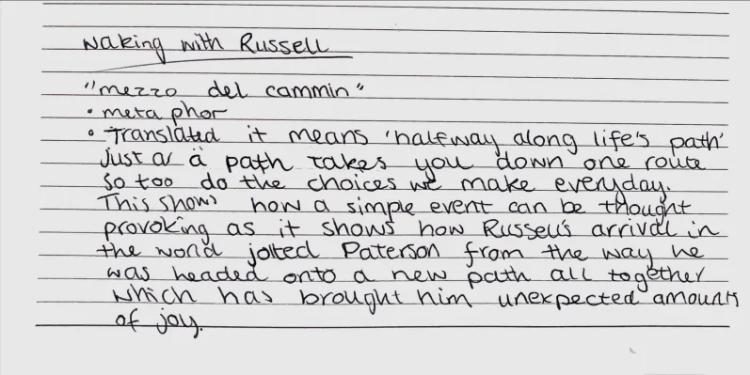 Waking with Russell
"mezzo del cammin"
• metaphor
• Translated it means 'halfway along life's path'
Just as a path takes you down one route
so too do the choices we make everyday.
This shows how a simple event can be thought
provoking as it shows how Russell's arrival in
the world jolted Paterson from the way he
was headed onto a new path all together
which has brought him unexpected amounts
of joy.